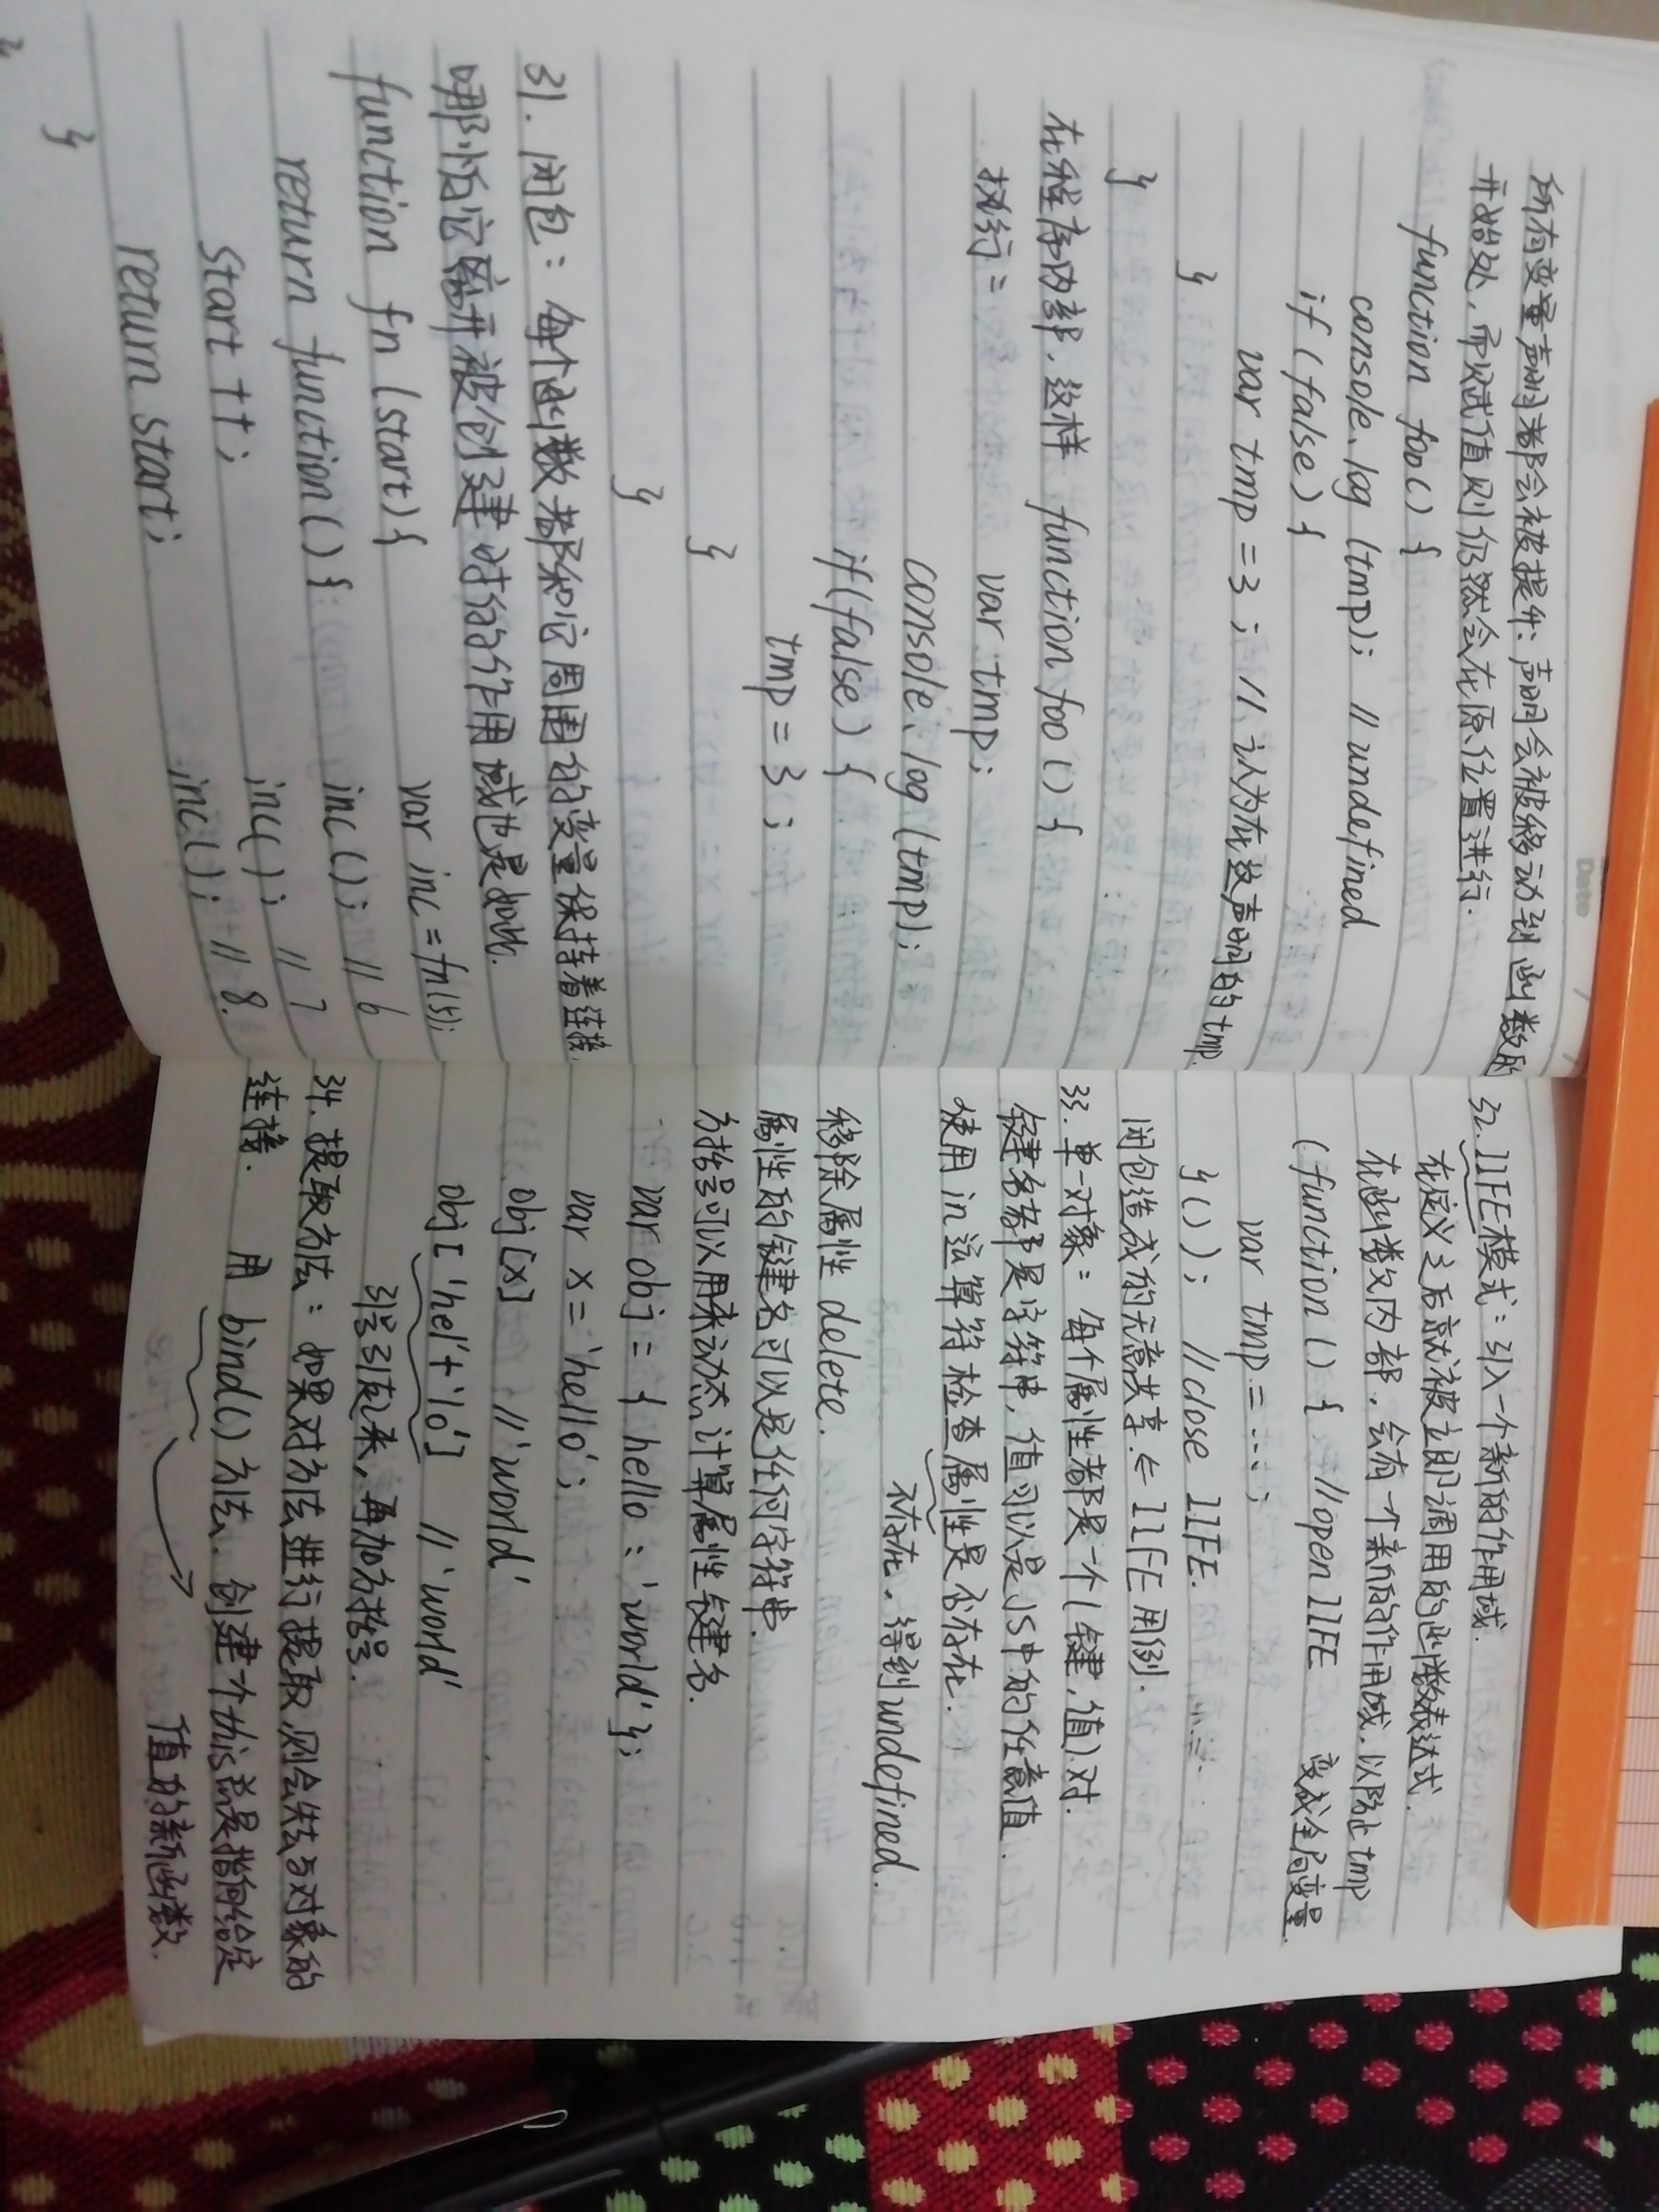 Date
所有变量声明都会被提升: 声明会被移动到函数的
开始处, 而赋值则仍然会在原位置进行.
function foo() {
console.log (tmp); // undefined
if (false) {
var tmp = 3; // 认为在这声明的tmp.
}
}
在程序内部, 这样 function foo () {
执行= var tmp;
console.log (tmp);
if(false) {
tmp = 3;
}
}
31. 闭包: 每个函数都和它周围的变量保持着连接.
哪怕它离开被创建时的作用域也是如此.
function fn (start) { var inc = fn(5);
return function () { inc(); // 6
start ++; inc(); // 7
return start; inc(); // 8.
}
}
32. IIFE模式: 引入一个新的作用域.
在定义之后就被立即调用的函数表达式.
在函数内部, 会有一个新的作用域, 以防止tmp
(function () { //open IIFE 变成全局变量.
var tmp = ...;
}()); //close IIFE.
闭包造成的无意共享 ← IIFE用例.
33. 单一对象: 每个属性都是一个(键, 值)对.
键名都是字符串, 值可以是JS中的任意值.
使用in运算符检查属性是否存在.
不存在, 得到undefined.
移除属性 delete.
属性的键名可以是任何字符串.
方括号可以用来动态计算属性键名.
var obj = { hello : 'world' };
var x = 'hello';
obj [x] // 'world'
obj ['hel'+'lo'] // 'world'
引号引起来, 再加方括号.
34. 提取方法: 如果对方法进行提取, 则会失去与对象的
连接. 用 bind() 方法. 创建个this总是指向给定
值的新函数.